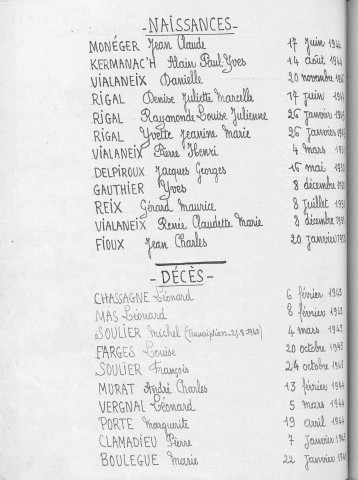 - NAISSANCES -
MONÉGER Jean Claude 17 Juin 1944
KERMANAC'H Alain Paul Yves 14 août 1944
VIALANEIX Danielle 20 novembre
RIGAL Denise Juliette Marcelle 17 juin
RIGAL Raymonde Louise Julienne 26 janvier
RIGAL Yvette Jeanine Marie 26 janvier
VIALANEIX Pierre Henri 4 mars
DELPIROUX Jacques Georges 16 mai
GAUTHIER Yves 8 décembre
REIX Gérard Maurice 8 juillet
VIALANEIX Renée Claudette Marie 8 décembre
FIOUX Jean Charles 20 janvier
- DÉCÈS -
CHASSAGNE Léonard 6 février 1943
MAS Léonard 8 février 1943
SOULIER Michel (Transcription 1943) 4 mars 1943
FARGES Louise 20 octobre 1943
SOULIER François 24 octobre 1943
MURAT André Charles 13 février 1944
VERGNAL Léonard 5 mars 1944
PORTE Marguerite 19 avril 1944
CLAMADIEU Pierre 7 janvier
BOULEGUE Marie 22 janvier